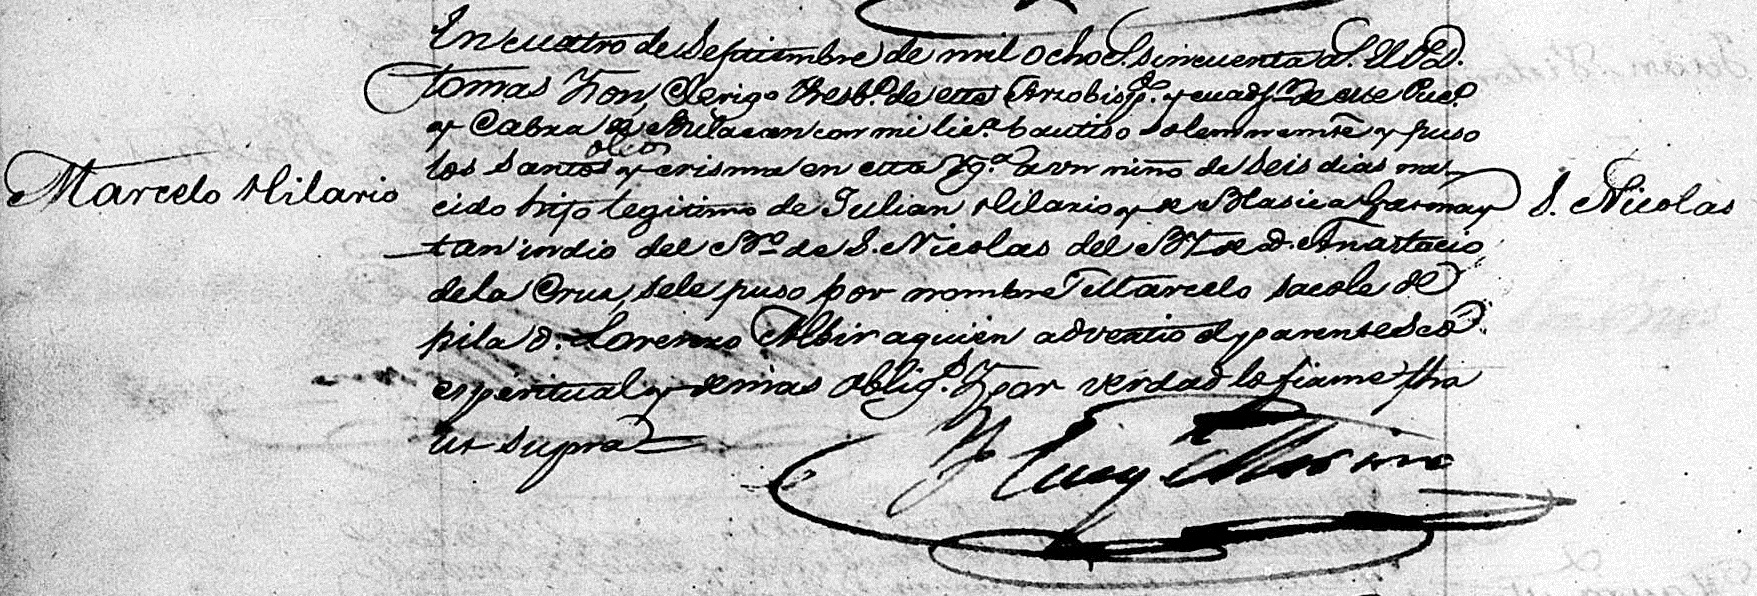 En cuatro de Septiembre de mil ochos. sincuenta a. El P. D.
Tomas Zon, Clerigo Presb.o de este Arzobisp.o y cuadj.r de este Pue.o
y Cabza de Bulacan con mi lic.a bautiso solemnemte y puso
los santos oleos y crisma en esta Yg.a a un niño de seis dias na-
Marcelo Hilario
cido hijo legitimo de Julian Hilario y de Blasica Gatmay
S. Nicolas
tan indio del B.o de S. Nicolas del B.y de d. Anastacio
de la Cruz, sele puso por nombre Marcelo sacole de
pila d. Lorenzo Alvir aquien advertio el parentesco
espiritual y demas oblig.s Y por verdad lo firme fha
ut supra